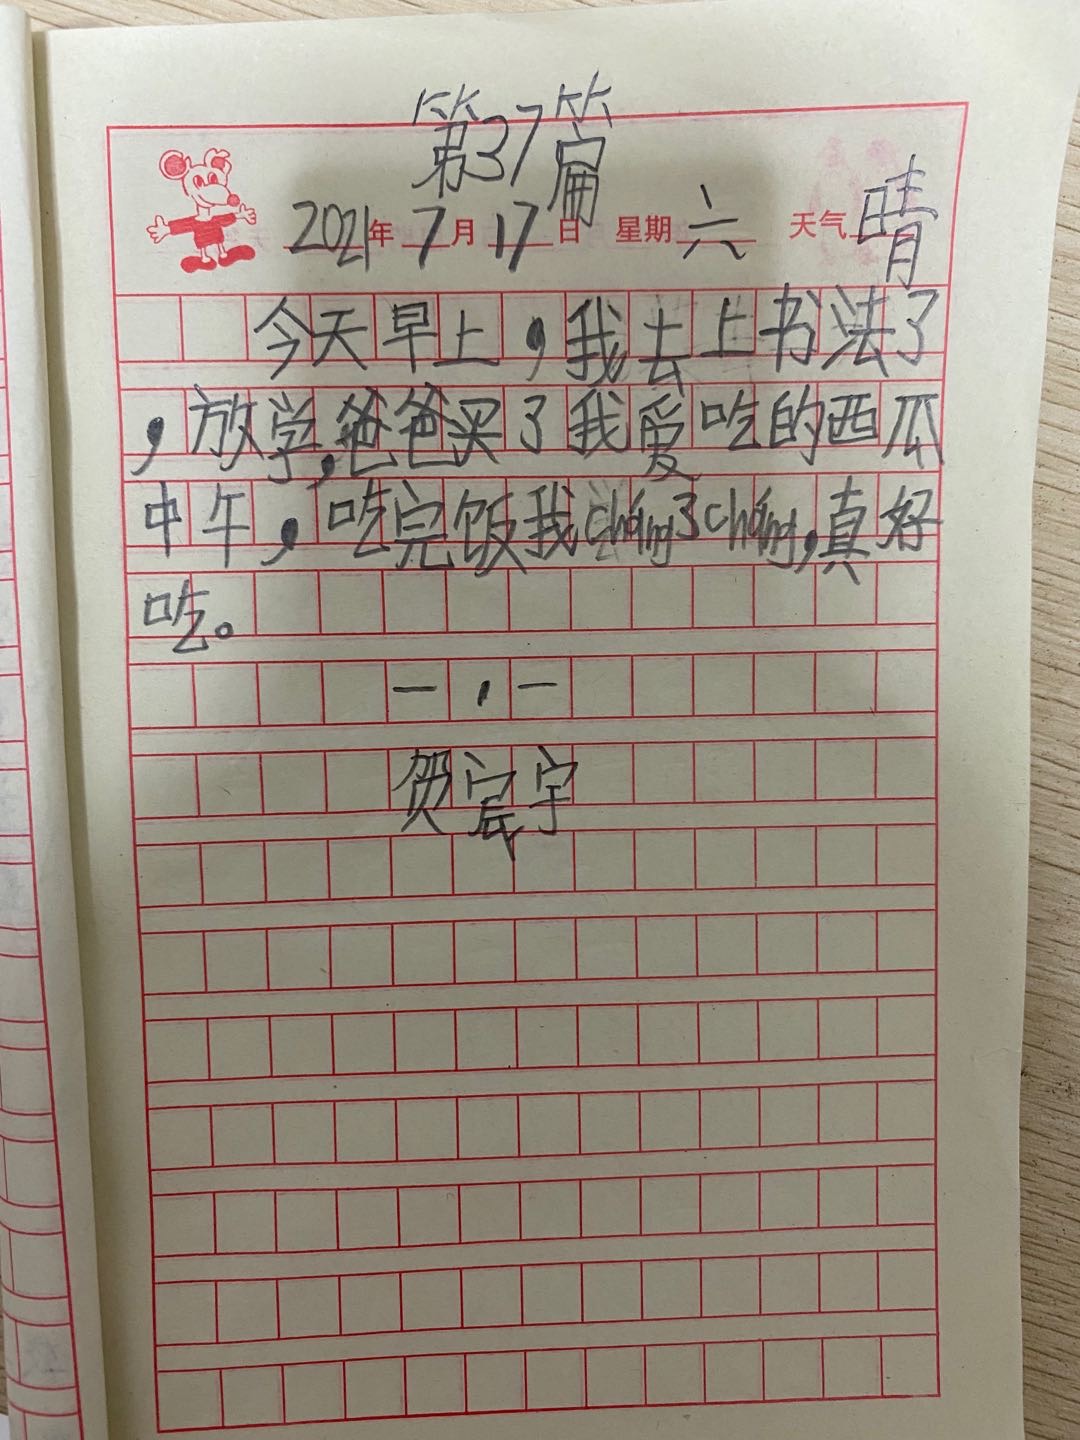 第37篇
2021年7月17日 星期六 天气晴
今天早上,我去上书法了
,放学,爸爸买了我爱吃的西瓜
中午,吃完饭我cháng了cháng,真好
吃。
一,一
贺宸宇